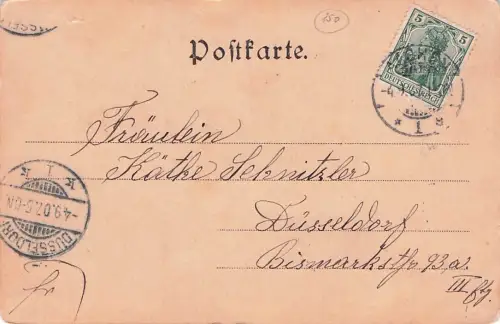 250
Postkarte.
5 5
DEUTSCHES REICH
Fräulein
Käthe Schnitzler
Düsseldorf
Bismarkstr 93.a.
III
DÜSSELDORF
-4.9.02.5-6N
* 1 k